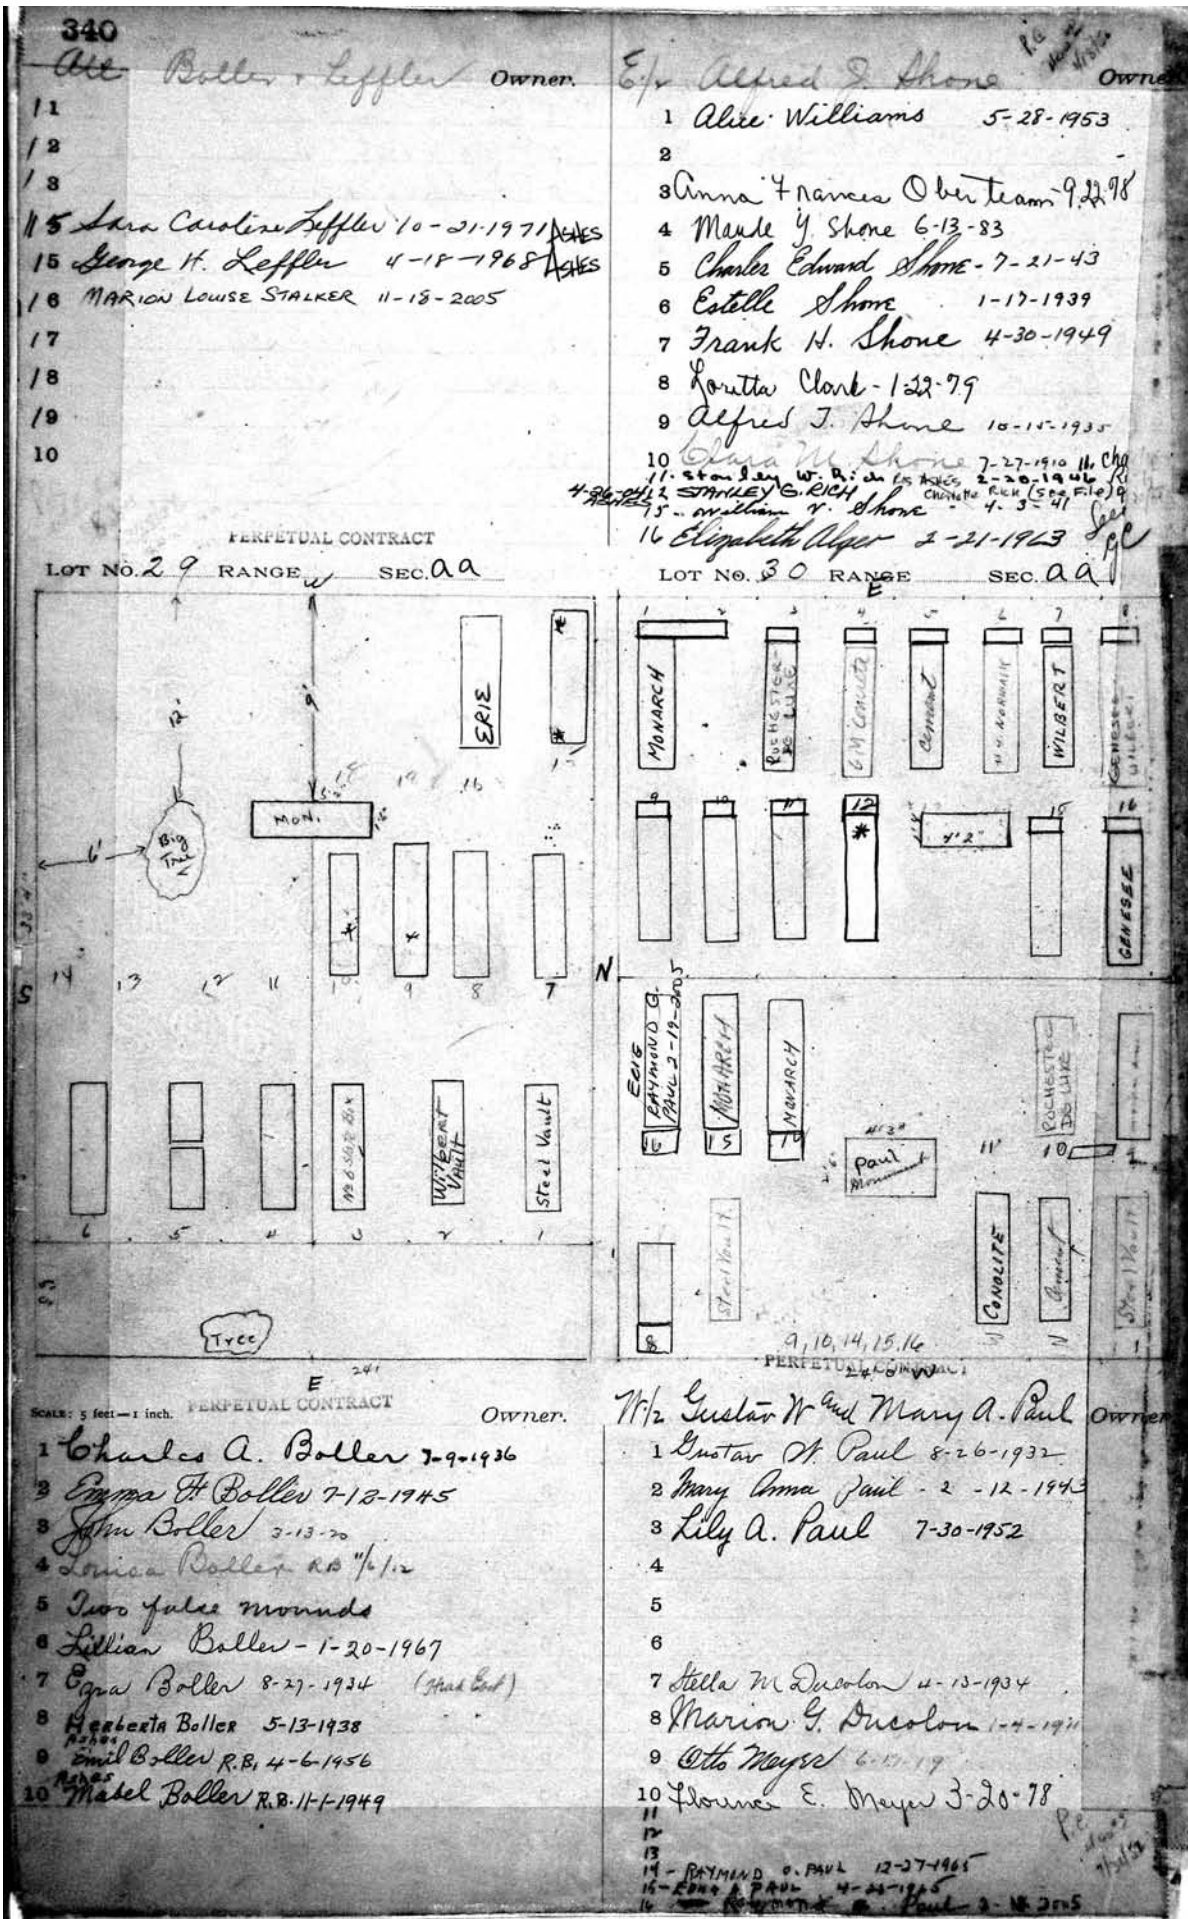 340
All Boller & Leffler Owner.
11
12
13
115 Sara Caroline Leffler 10-21-1971 ASHES
15 George H. Leffler 4-18-1968 ASHES
16 MARION LOUISE STALKER 11-18-2005
17
18
19
10
PERPETUAL CONTRACT
LOT NO. 29 RANGE SEC. AA
E/2 Alfred J. Shone Owner
1 Alice Williams 5-28-1953
2
3 Anna Frances Oberteams 9.22.78
4 Maude Y. Shone 6-13-83
5 Charles Edward Shone - 7-21-43
6 Estelle Shone 1-17-1939
7 Frank H. Shone 4-30-1949
8 Loretta Clark - 1-22-79
9 Alfred J. Shone 10-15-1935
10 Clara M. Shone 7-27-1910
11. Stanley W. Rich ASHES 2-20-1946
4-26-04 12 STANLEY G. RICH Charlotte Rich (See File)
ASHES
15 - William V. Shone - 4-3-41
16 Elizabeth Alger 2-21-1963 See
LOT NO. 30 RANGE SEC. AA
W
12'
9'
ERIE
15
18
17
16
MON.
Big Tree
6'
S
14 13 12 11 10 9 8 7
N
No 6 Slip Box
Wilbert Vault
Steel Vault
6 5 4 3 2 1
Tree
E
24'
E
1 2 3 4 5 6 7 8
MONARCH
ROCHESTER DE LUXE
6M Concrete
Cement
N.Y. NORWALK
WILBERT
GENESEE WILBERT
9 10 11 12 15 16
4'2"
GENESEE
ERIE
RAYMOND G.
PAUL 2-19-2005
MONARCH
MONARCH
16 15 14
4'3"
Paul Monument
11 10 9
ROCHESTER DELUXE
8
Steel Vault
CONOLITE
Cement
Steel Vault
9, 10, 14, 15, 16
PERPETUAL CONTRACT
24.0 W
SCALE: 5 feet—1 inch. PERPETUAL CONTRACT Owner.
1 Charles A. Boller 7-9-1936
2 Emma H Boller 7-12-1945
3 John Boller 3-13-20
4 Louisa Boller RB 11/6/12
5 Two false mounds
6 Lillian Boller - 1-20-1967
7 Ezra Boller 8-27-1934 (Head East)
8 Herberta Boller 5-13-1938
Ashes
9 Emil Boller R.B. 4-6-1956
Ashes
10 Mabel Boller R.B. 11-1-1949
W/2 Gustav W and Mary A. Paul Owner
1 Gustav W. Paul 8-26-1932
2 Mary Anna Paul - 2-12-1943
3 Lily A. Paul 7-30-1952
4
5
6
7 Stella M Ducolon 4-13-1934
8 Marion G. Ducolon
9 Otto Meyer 6-17-19
10 Florence E. Meyer 3-20-78
11
12
13
14 - RAYMOND O. PAUL 12-27-1965
15 - EDNA PAUL
16 Raymond G. Paul 2-19-2005